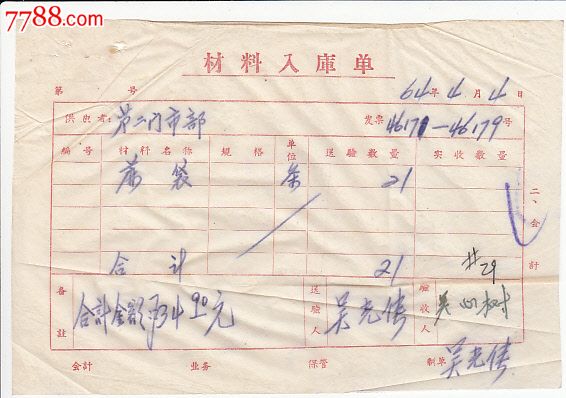 7788.com
材料入庫单
第 号 64年4月4日
供应者: 第二门市部 发票 46171—46179号
編号 材料名称 規格 单位 送驗数量 实收数量
蔴袋 条 21
二、会計
合計 21 #29
备註 合計金額 734 90元 送驗人 吴光倩 驗收人
会計 业务 保管 制单 吴光倩